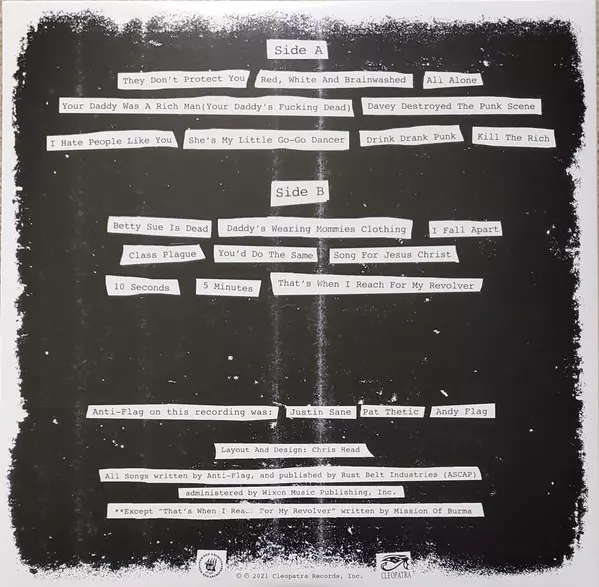 Side A
They Don't Protect You Red, White And Brainwashed All Alone
Your Daddy Was A Rich Man(Your Daddy's Fucking Dead) Davey Destroyed The Punk Scene
I Hate People Like You She's My Little Go-Go Dancer Drink Drank Punk Kill The Rich
Side B
Betty Sue Is Dead Daddy's Wearing Mommies Clothing I Fall Apart
Class Plague You'd Do The Same Song For Jesus Christ
10 Seconds 5 Minutes That's When I Reach For My Revolver
Anti-Flag on this recording was: Justin Sane Pat Thetic Andy Flag
Layout And Design: Chris Head
All Songs written by Anti-Flag, and published by Rust Belt Industries (ASCAP)
administered by Wixon Music Publishing, Inc.
**Except "That's When I Reach For My Revolver" written by Mission Of Burma
© ℗ 2021 Cleopatra Records, Inc.
CLEOPATRA